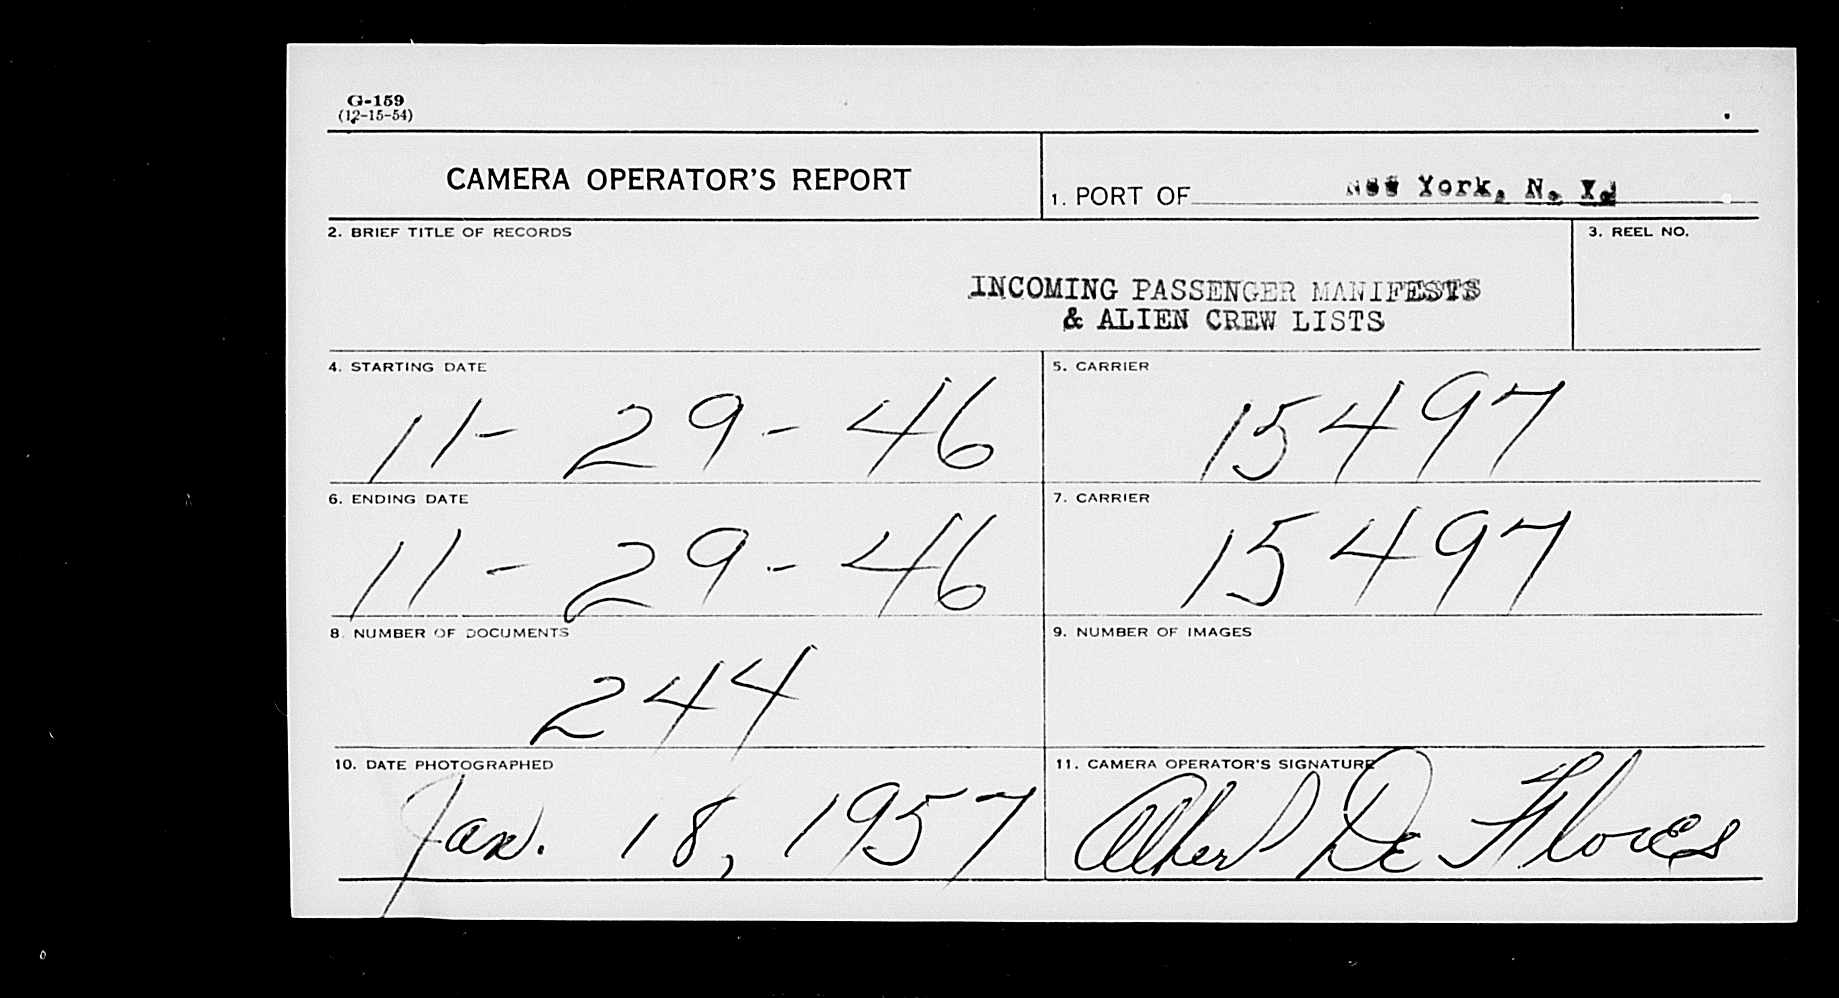 G-159
(12-15-54)
CAMERA OPERATOR'S REPORT
1. PORT OF New York, N. Y.
2. BRIEF TITLE OF RECORDS
3. REEL NO.
INCOMING PASSENGER MANIFESTS
& ALIEN CREW LISTS
4. STARTING DATE
11-29-46
5. CARRIER
15497
6. ENDING DATE
11-29-46
7. CARRIER
15497
8. NUMBER OF DOCUMENTS
244
9. NUMBER OF IMAGES
10. DATE PHOTOGRAPHED
Jan. 18, 1957
11. CAMERA OPERATOR'S SIGNATURE
Albert De Flores